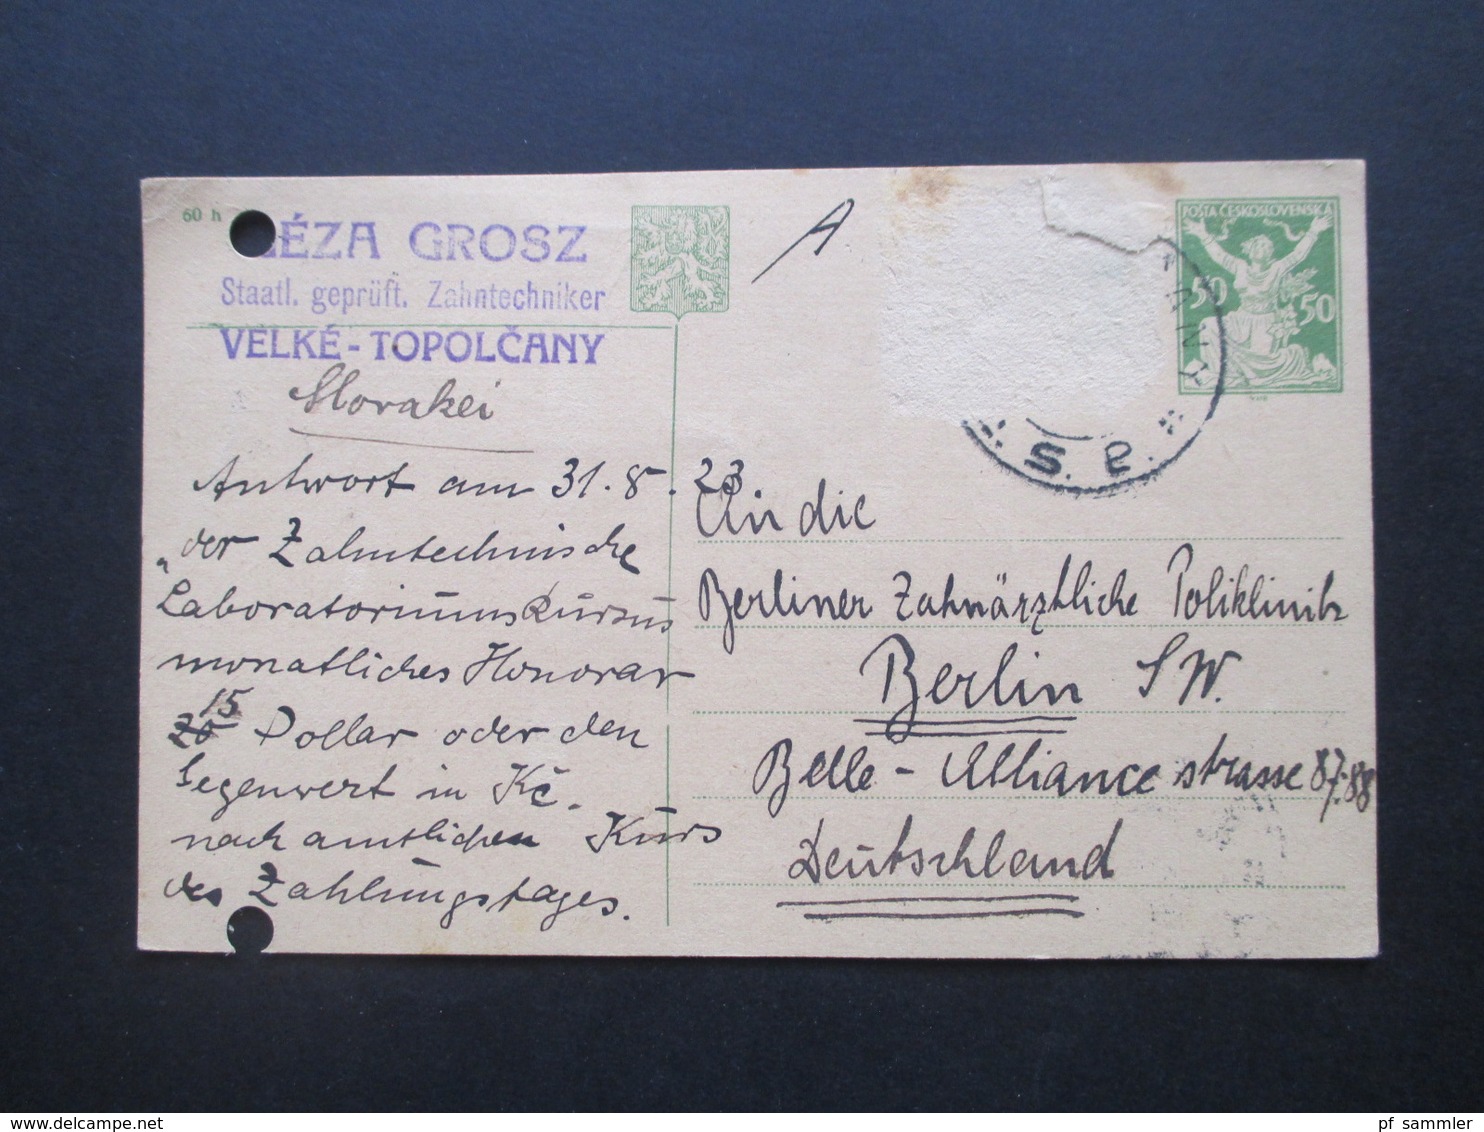 60 h
GÉZA GROSZ
Staatl. geprüft. Zahntechniker
VELKÉ-TOPOLČANY
Slovakei
Antwort am 31.8.23
"der Zahntechnische
Laboratoriumskursus
monatliches Honorar
20 15 Dollar oder den
Gegenwert in Kč.
nach amtlichen Kurs
des Zahlungstages.
A
POŠTA ČESKOSLOVENSKÁ
50 50
ANY
An die
Berliner Zahnärztliche Poliklinik
Berlin SW.
Belle-Alliance strasse 87-88
Deutschland
pf_sammler